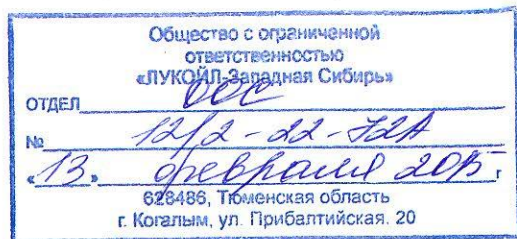 Общество с ограниченной
ответственностью
«ЛУКОЙЛ-Западная Сибирь»
ОТДЕЛ ООС
№ 12/2-22-72А
«13» февраля 2015 г
628486, Тюменская область
г. Когалым, ул. Прибалтийская. 20